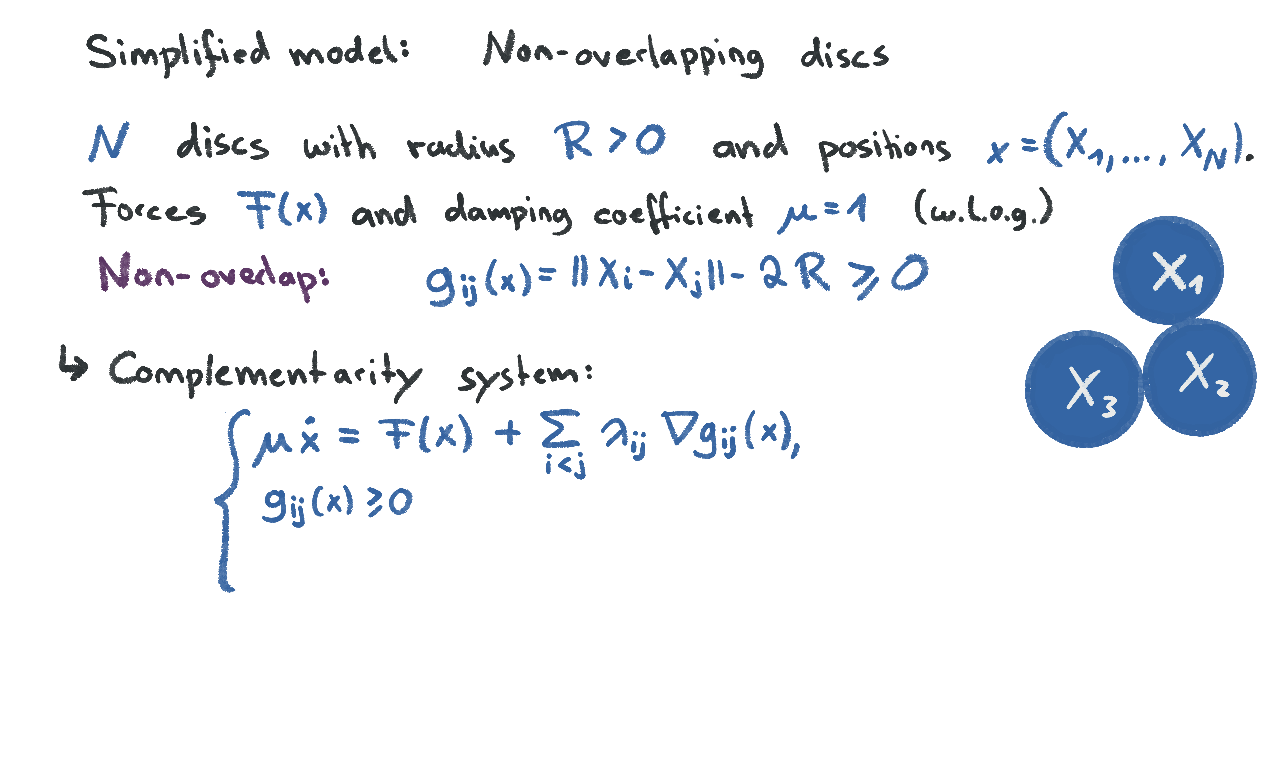 Simplified model: Non-overlapping discs
N discs with radius R > 0 and positions x = (X₁,..., X_N).
Forces F(x) and damping coefficient μ = 1 (w.l.o.g.)
Non-overlap: g_ij(x) = ||X_i - X_j|| - 2R ⩾ 0
X₁
X₃ X₂
↳ Complementarity system:
{ μẋ = F(x) + ∑_{i<j} λ_ij ∇g_ij(x),
g_ij(x) ⩾ 0